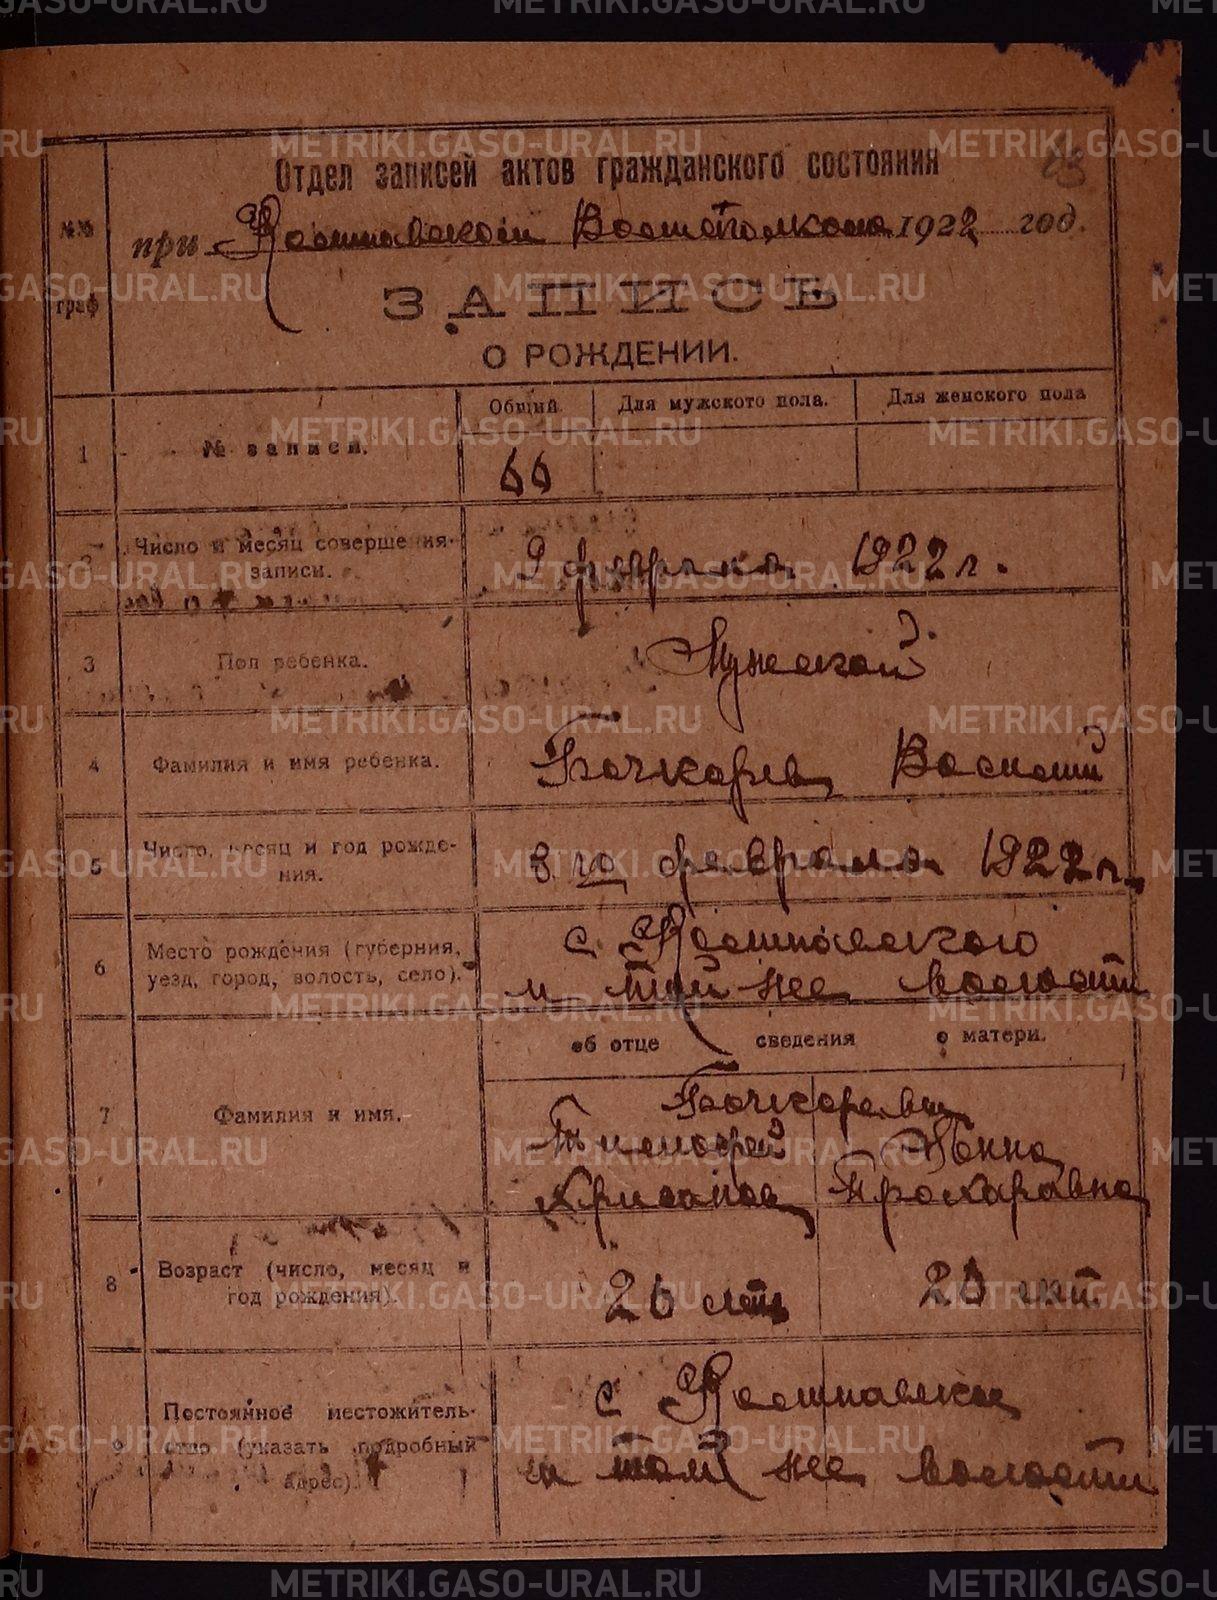 Отдел записей актов гражданского состояния
№№ граф
при Волисполкома 1922 год.
ЗАПИСЬ
О РОЖДЕНИИ.
Общий. Для мужского пола. Для женского пола
1 № записи. 66
2 Число и месяц совершения записи. 9 февраля 1922 г.
3 Пол ребенка. Мужской
4 Фамилия и имя ребенка. Бочкарев Василий
5 Число, месяц и год рождения. 8 го февраля 1922 г.
6 Место рождения (губерния, уезд, город, волость, село). с
и той же волости
об отце сведения о матери.
7 Фамилия и имя. Бочкаревы
Тимофей Анна
Прохаровна
8 Возраст (число, месяц и год рождения). 26 лет 20 лет
9 Постоянное местожительство (указать подробный адрес). с
и той же волости
METRIKI.GASO-URAL.RU